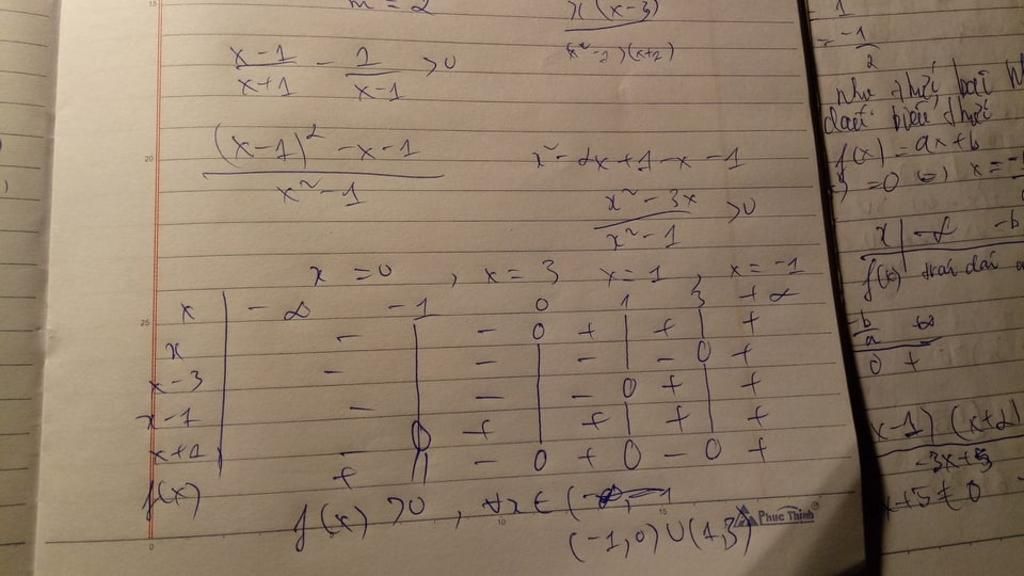 m = 2
x(x-3)
(x²-1)(x+2)
(x-1)/(x+1) - 1/(x-1) > 0
((x-1)² - x - 1)/(x² - 1)
x² - 2x + 1 - x - 1
(x² - 3x)/(x² - 1) > 0
x = 0 , x = 3 x = 1 , x = -1
x | -∞ -1 0 1 3 +∞
x - | - 0 + | + | +
x-3 - | - | - | - 0 +
x-1 - | - | - 0 + | +
x+1 - 0 + | + | + | +
f(x) + || - 0 + 0 - 0 +
f(x) > 0 , ∀x ∈ (
(-1,0) ∪ (1,3)
Phuc Thinh
20
25
0
10
15
1
= -1/2
Nhu thức bậc
dấu biểu thức
f(x) = ax + b
= 0 ⇔ x = -
x | -∞ -b
f(x) trái dấu
-b/a ∞
0 +
x-1)(x+2)
-3x+5
x+5 ≠ 0